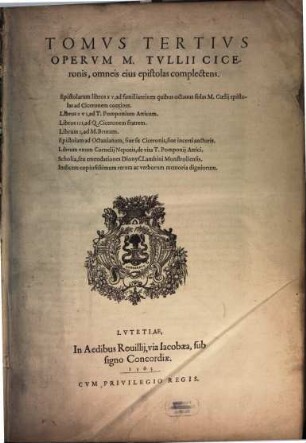 TOMVS TERTIVS
OPERVM M. TVLLII CICE-
ronis, omneis eius epistolas complectens.
Epistolarum libros XV, ad familiareis: in quibus octauus solas M. Cælij episto-
las ad Ciceronem continet.
Libros XVI, ad T. Pomponium Atticum.
Libros III, ad Q. Ciceronem fratrem.
Librum I, ad M. Brutum.
Epistolam ad Octauianum, siue sit Ciceronis, siue incerti auctoris.
Librum vnum Cornelij Nepotis, de vita T. Pomponij Attici.
Scholia, siue emendationes Dionys. Lambini Monstroliensis.
Indicem copiosissimum rerum ac verborum memoria dignorum.
LVTETIAE,
In Aedibus Rouillij, via Iacobæa, sub
signo Concordiæ.
CVM PRIVILEGIO REGIS.